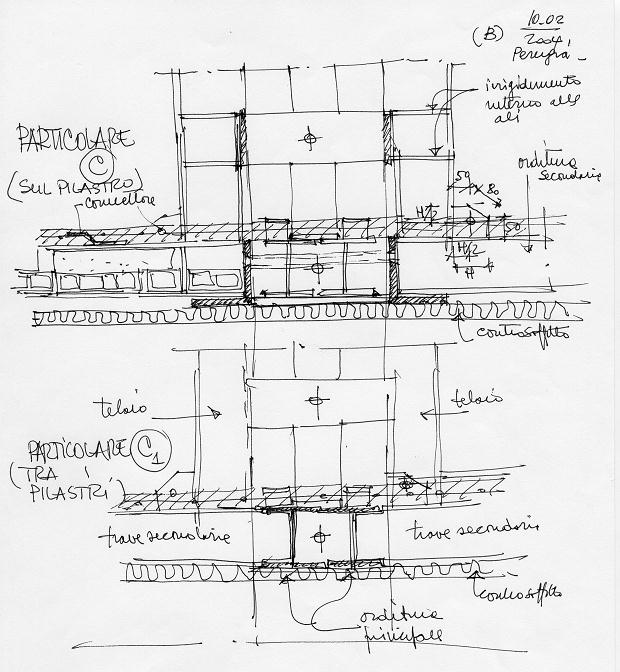 (B) 10.02
2004,
Perugia
irrigidimento
interno alle
ali
PARTICOLARE
C
(SUL PILASTRO)
connettore
orditura
secondaria
50
80
H/2
50
H/2
H
controsoffitto
telaio
telaio
PARTICOLARE C1
(TRA I
PILASTRI)
trave secondaria
trave secondaria
controsoffitto
orditura
principale